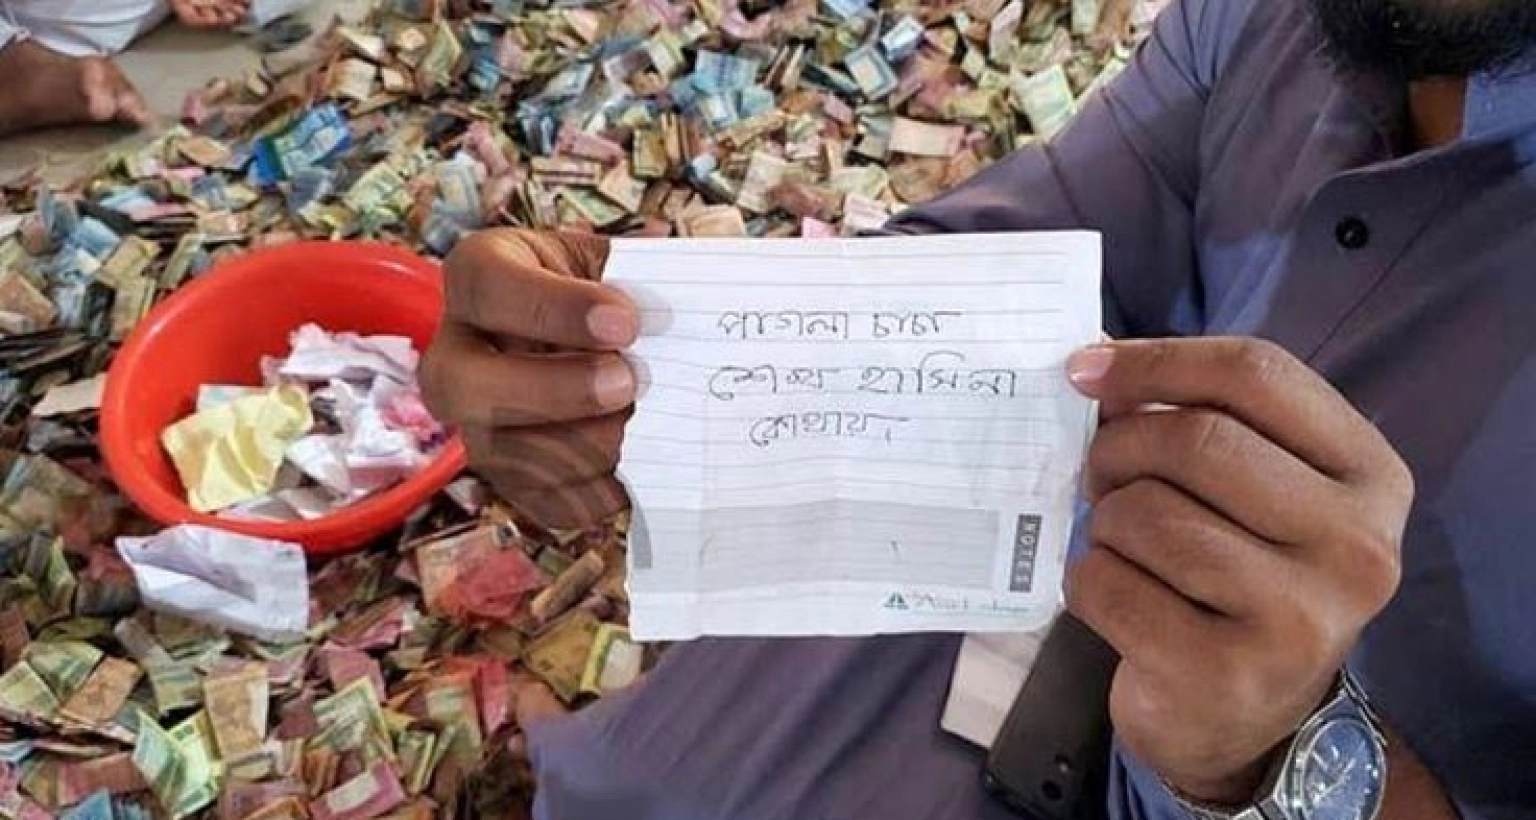 পাগলা চাচা
শেখ হাসিনা
কোথায়,
NOTES